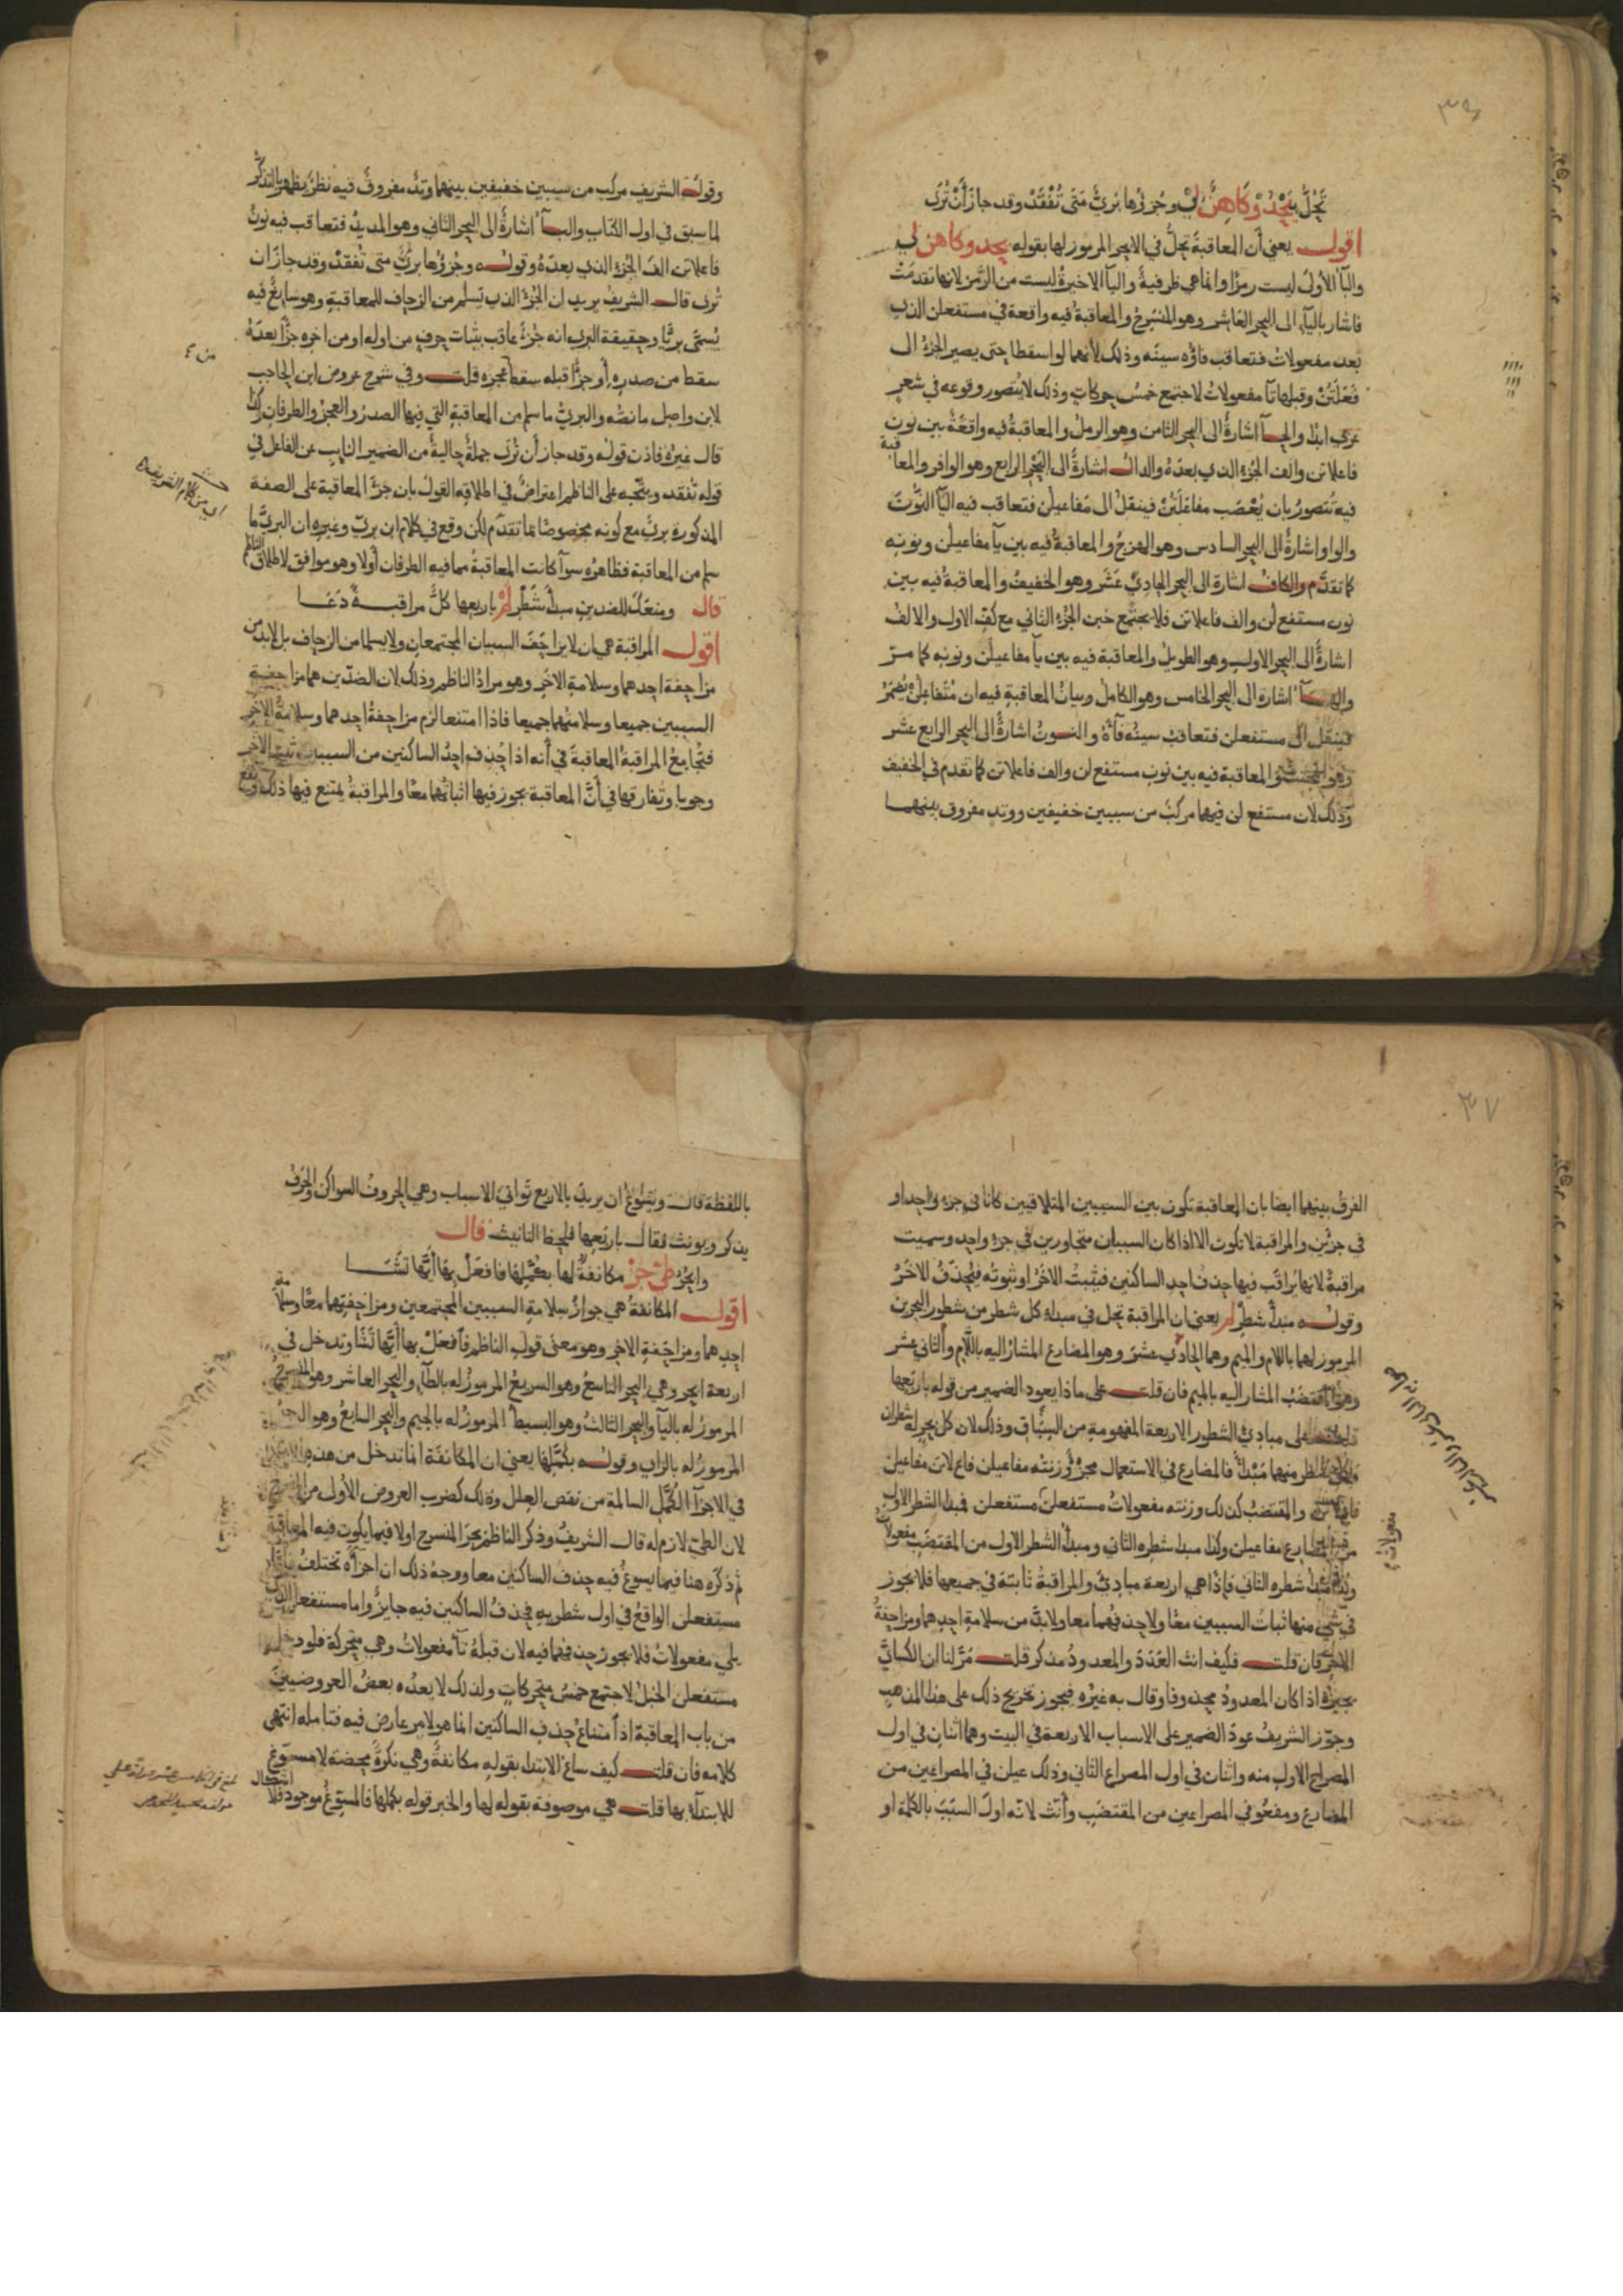 ٣٦
تَحُلُّ بِيَجْدُ وَكَاهِنٌ لِي وجُزؤُها بَرِيٌّ مَتَى تُفْقَدْ وقد جازَ أَنْ تُرَى
اقول يعني أن المعاقبةَ تحلُّ في الابحر المرموز لها بقوله يجد وكاهن لي
والبآ الأولى ليست رمزًا وانما هي ظرفيةٌ واليآ الاخيرةُ ليست من الرمز لانها تقدمت
فاشار باليآء الى البحر العاشر وهو المنسرحُ والمعاقبةُ فيه واقعة في مستفعلن الذي
بعد مفعولاتُ فتعاقب فاؤه سينَه وذلك لأنهما لو اسقطا حتى يصير الجزء الى
فَعِلَتُنْ وقبلها تآ مفعولاتُ لاجتمع خمسُ حركاتٍ وذلك لا يُتصور وقوعه في شعرٍ
عربي ابدًا والجيمآ اشارةٌ الى البحر الثامن وهو الرملُ والمعاقبةُ فيه واقعةٌ بين نون
فاعلاتن والف الجزء الذي بعدَه والدال اشارةٌ الى البَحْر الرابع وهو الوافر والمعاقبة
فيه تُتصورُ بان يُعْصَب مفاعَلَتُنْ فينقلُ الى مَفاعيلن فتعاقب فيه اليآ النُّونَ
والواو اشارةٌ الى البحر السادس وهو الهزجُ والمعاقبةُ فيه بين يآ مفاعيلن ونونه
كما تقدَّم والكاف اشارة الى البحر الحاديْ عَشَر وهو الخفيفُ والمعاقبةُ فيه بين
نون مستفع لن والف فاعلاتن فلا يجتمع خبن الجزء الثاني مع كفّ الاول والالفُ
اشارةٌ الى البحر الاول وهو الطويلُ والمعاقبة فيه بين يآ مفاعيلن ونونه كما مـرّ
والهـآ اشارة الى البحر الخامس وهو الكاملُ وبيانُ المعاقبةِ فيه ان مُتَفاعِلُنْ يُضمَرُ
فينقل الى مستفعلن فتعاقبُ سينُه فآءَهُ والنون اشارةٌ الى البحر الرابع عشر
وهو المجتثّ والمعاقبة فيه بين نون مستفع لن والف فاعلاتن كما تقدم في الخفيف
وذلك لان مستفع لن فيهما مركبٌ من سببين خفيفين ووتد مفروق بينهمـا
وقولُه الشريف مركب من سببين خفيفين بينهما وتدٌ مفروقٌ فيه نظرٌ يظهر بالتذكّر
لما سبق في اول الكتاب والبـآ اشارةٌ الى البحر الثاني وهو المديدُ فتعاقب فيه نونُ
فاعلاتن الفَ الجُزء الذي بعدَهُ وقولـه وجُزؤُها بريٌّ متى تُفقدْ وقد جازَ ان
تُرى قال الشريفُ يريد ان الجُزءَ الذي يَسلَم من الزحاف للمعاقبةِ وهو سايغٌ فيه
يُسمَّى بريًّا وحقيقة البري انه جُزءٌ عاقب بثبات حرف من اوله او من اخره جزًا بعدَهُ
سقط من صدره أو جزًا قبله سقط عجزه قلت وفي شرح عروض ابن الحاجب
لابن واصل ما نصّه والبريُّ ما سلم من المعاقبة التي فيها الصدرُ والعجزُ والطرفان وكذا
قال غيرُه فاذن قولُه وقد جاز أن تُرى جملةٌ حاليةٌ من الضمير النايب عن الفاعل في
قوله تُفْقد ويتَّجه على الناظم اعتراضٌ في اطلاقه القولَ بان جزَء المعاقبة على الصفة
المذكورة بريٌّ مع كونه مخصوصًا بما تقدَّم لكن وقع في كلام ابن بريّ وغيره ان البريَّ ما
سلم من المعاقبة فظاهرُه سوآ كانت المعاقبةُ مما فيه الطرفان أولا وهو موافق لاطلاق الناظم
قال ومنعُكَ للضدينِ مبدأُ شَطْرِ لَمْ باربعِها كلُّ مراقبـةً دَعَـا
اقول المراقبة هي ان لا يزاحَفَ السببان المجتمعان ولا يسلما من الزحاف بل لابد من
مزاحفة احدهما وسلامةِ الآخَر وهو مرادُ الناظم وذلك لان الضدّين هما مزاحفة
السببين جميعا وسلامتُهما جميعا فاذا امتنعا لزم مزاحفةُ احدهما وسلامةُ الآخَر
فتُجامِعُ المراقبةُ المعاقبةَ في أنه اذا حُذف احدُ الساكنين من السببين ثبت الآخر
وجوبا وتفارقها في أنَّ المعاقبة يجوز فيها اثباتُهما معًا والمراقبةُ يمتنع فيها ذلك
اي من كلام الشريف
٣٧
الفرقُ بينهما ايضا بان المعاقبة تكون بين السببين المتلاقيين كانا في جزءٍ واحدٍ او
في جزئين والمراقبة لا تكون الا اذا كان السببان متجاورين في جزء واحد وسميت
مراقبةً لانها يُراقَب فيها حذف احد الساكنين فيثبتُ الآخَرُ او ثبوتُه فيُحذَفُ الآخَرُ
وقولـه مبدأُ شطرِ لم يعني ان المراقبة تحل في مبدإِ كل شطر من شطور البحرين
المرموز لهما باللام والميم وهما الحادي عشر وهو المضارع المشارُ اليه باللام والثاني عشر
وهو المقتضَبُ المشار اليه بالميم فان قلت على ماذا يعود الضمير من قوله باربعِها
قلت على مبادئ الشطور الاربعة المفهومة من السِّياق وذلك لان كل بحر له شطران
ولكل شطر منهما مَبْدأٌ فالمضارع في الاستعمال مجزوٌّ وزنتُه مفاعيلن فاع لاتن مفاعيلن
فاع لاتن والمقتضبُ كذلك وزنته مفعولاتُ مستفعلن مستفعلن فمبدأ الشطر الاول
من المضارع مفاعيلن وكذا مبدأ شطره الثاني ومبدأُ الشطر الاول من المقتضَب مفعولات
وكذا مبدأُ شطره الثاني فاذًا هي اربعة مبادئَ والمراقبةُ ثابتة في جميعها فلا يجوز
في شيءٍ منها ثباتُ السببين معًا ولا حذفُهما معا ولابدَّ من سلامةِ احدهما ومزاحفةُ
الاخر فان قلت فكيف انث العَدَدَ والمعدودُ مذكر قلت مَرَّ لنا ان الكسائيَّ
يجيزُه اذا كان المعدودُ محذوفا وقال به غيرُه فيجوز تخريج ذلك على هذا المذهب
وجوّز الشريفُ عودَ الضمير على الاسباب الاربعة في البيت وهما اثنان في اول
المصراع الاول منه واثنان في اول المصراع الثاني وذلك عيلن في المصراعين من
المضارع ومفعُو في المصراعين من المقتضَبِ وأنّث لانّه اوَّلَ السبَبَ بالكلمة او
مفعولات
باللفظة قال ويسُوغُ ان يريدَ بالاربع ثوانيَ الاسباب وهي الحروفُ السواكن والحرفُ
يذكر ويونث فقال باربعِها فلحظ التانيث قال
وابْحُرُ طَيّ جَزْ مكانفةٌ لها بكُمَّلِها فافعَلْ بها أيَّها تَشَـا
اقول المكانفةُ هي جوازُ سلامةِ السببين المجتمعين ومزاحفتِهما معًا وسلامة
احدهما ومزاحَفةِ الاخر وهو معنى قول الناظم فافعَلْ بها أيَّها تَشَا وتدخل في
اربعة ابحر وهي البحر التاسعُ وهو السريعُ المرموزُ له بالطآء والبحر العاشر وهو المنسرحُ
المرموزُ له باليآ والبحر الثالثُ وهو البسيطُ المرموزُ له بالجيم والبحر السابعُ وهو الرجز
المرموزُ له بالزاي وقولـه بكُمَّلِها يعني ان المكانفة انما تدخل من هذه
في الاجزآ الكُمَّل السالمة من نقص العِلل وذلك كضرب العروض الأول من المنسرح
لان الطيَّ لازم له قال الشريفُ وذكر الناظمُ بحرَ المنسرح اولا فيما يكون فيه المعاقبة
ثم ذكَره هنا فيما يسوغُ فيه حذف الساكنين معا ووجهُ ذلك ان اجزآءَه تختلفُ
مستفعلن الواقعُ في اول شطريه فحذفُ الساكنين فيه جايزٌ واما مستفعلن الذي
يلي مفعولاتُ فلا يجوز حذفهما فيه لان قبلَهُ تآ مفعولاتُ وهي متحركة فلو دخل
مستفعلن الخبلُ لاجتمع خمسُ متحركاتٍ ولذلك لا يعدُّه بعضُ العروضيينَ
من باب المعاقبة اذ امتناعُ حذف الساكنين انما هو لامرٍ عارض فيه فتامله انتهى
كلامه فان قلت كيف ساغ الابتدا بقوله مكانفةٌ وهي نكرةٌ محضة لا مسوّغ
للابتدآء بها قلت هي موصوفة بقوله لها والخبر قوله بكمّلها فالمسوّغُ موجود فلا
اشكال